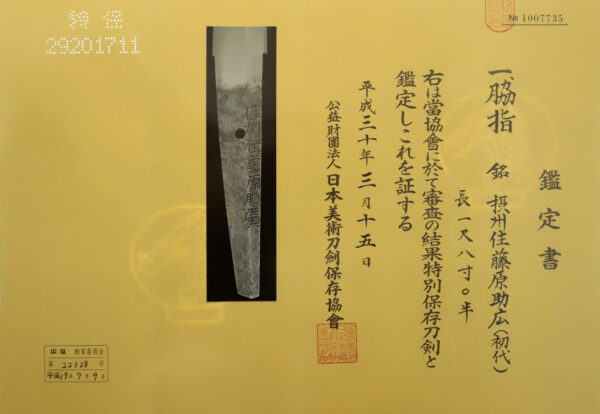 № 1007735
鑑定書
一、脇指 銘 摂州住藤原助広(初代)
長一尺八寸〇半
右は當協會に於て審査の結果特別保存刀剣と
鑑定しこれを証する
平成三十年三月十五日
公益財團法人日本美術刀劍保存協會
摂州住藤原助広
特保
29201711
教育委員会
第 22328 号
平成19年7月9日